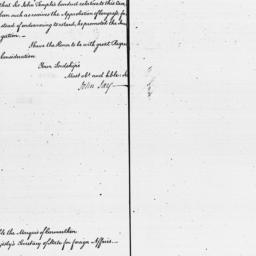 that Sir John Temple's Conduct relative to this Com
been such as received the Approbation of Congress for
stead of endeavouring to retard, he promoted the
gation.—
I have the Honor to be with great Respect
Consideration
Your Lordship's
Most Obt. and hble: Se
John Jay—
The Marquis of Carmarthen
jesty's Secretary of State for foreign Affairs.—